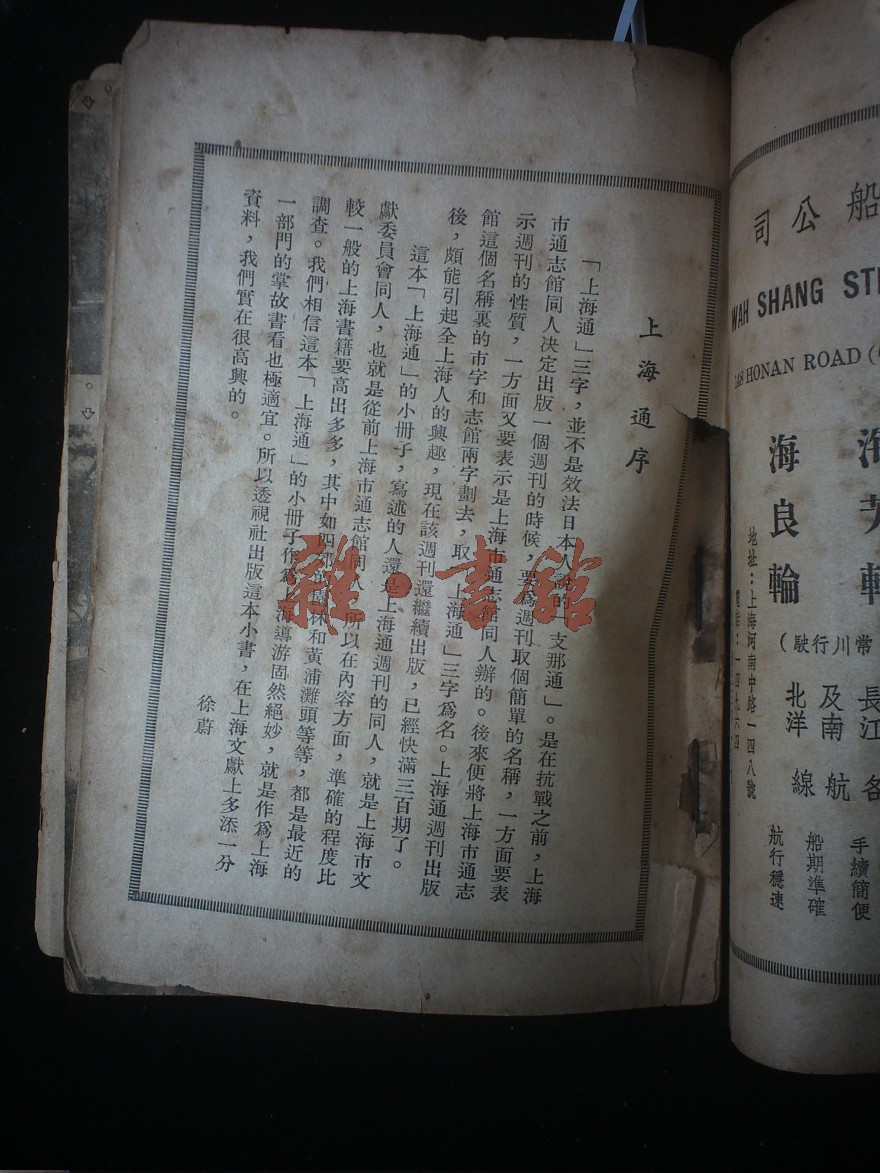 上海通序
「上海通」三字，並不是效法日本人說的「支那通」。是在抗戰之前，上海
市通志館同人決定出版一個週刊的時候，要為週刊取個簡單的名稱，一方面要表
示週刊的性質，一方面又要表示是上海市通志館同人辦的。後來便將上海市通志
館這個名稱裏的市字和志館兩字劃去，取「上海通」三字爲名。上海通週刊出版
後，頗能引起全上海人的興趣，現在該週刊還繼續出版，已經快滿三百期了。
這本「上海通」的小冊子，寫述的人還是上海通週刊的同人，就是上海市文
獻委員會同人，也就是從前上海市通志館同人，所以在內容方面，準確的程度比
較一般的上海書籍要高出多多，其中如四郊的園林和黃浦灘頭等等，都是最近的
調查。我們相信這本「上海通」的小冊子作爲上海導游固然絕妙，就是作爲上海
一部門的掌故書看也極適宜。所以透視社出版這本小書，在上海文獻上多添一分
資料，我們實在很高興的。
徐蔚
雜·書館
船公司
WAH SHANG STE
148 HONAN ROAD (
海良輪
(常川行駛
長江
及南
北洋
各
航
線
手續簡便
船期準確
航行穩速
地址：上海河南中路一四八號